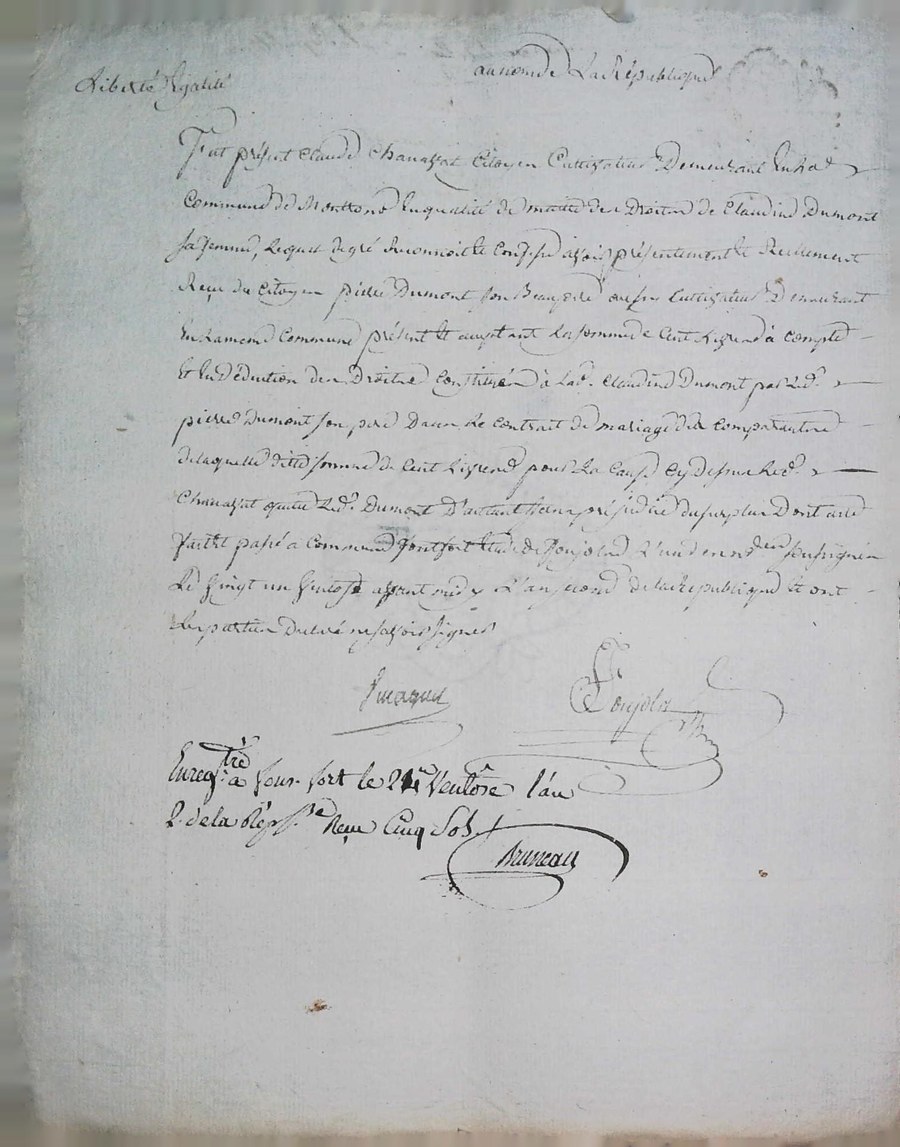 Liberté Egalité
au nom de La République
Fut présent Claude Chanassat Citoyen Cultivateur Demeurant En la d.
Commune de En qualité de maitre des Droitz de Claudine Dumont
sa femme, Lequel de gré Reconnoit et Confesse avoir présentement et Réellement
Reçu du Citoyen pierre Dumont son Beaupere aussy Cultivateur Demeurant
En La meme Commune présent et aceptant La somme de Cent Livres à Compte
Et En Déduction des Droitz Constitués à Lad. Claudine Dumont par Led.
pierre Dumont son pere Dans Le contrat de mariage des comparants
de laquelle ditte somme de Cent Livres pour La Cause Cy dessus Led.
Chanassat quitte Led. Dumont D'autant sans préjudice du surplus Dont acte
fait et passé à Commune fontfort Etude de Poujola L'un des nres soussignés
Le Vingt un Ventose avant midy L'an second de la République Et ont
Les parties Declaré ne savoir signer
Poujola
Enregtré à fons-fort le 21 Ventose l'an
2. de la Répque Reçu Cinq Sols
Bruneau